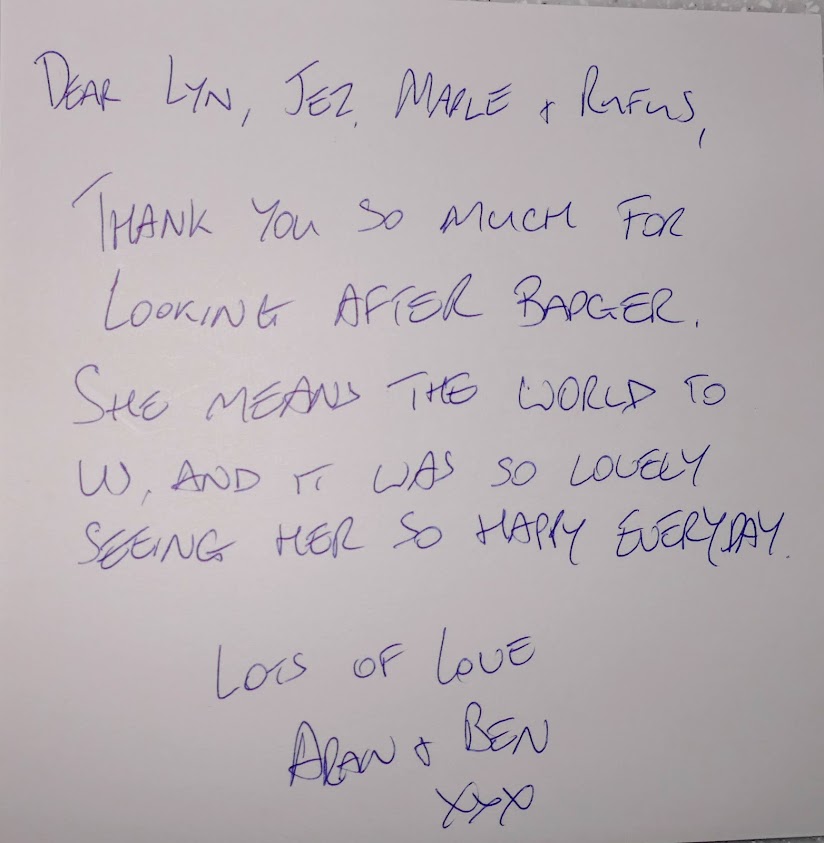 DEAR LYN, JEZ, MAPLE + RUFUS,
THANK YOU SO MUCH FOR
LOOKING AFTER BADGER.
SHE MEANS THE WORLD TO
US, AND IT WAS SO LOVELY
SEEING HER SO HAPPY EVERYDAY.
LOTS OF LOVE
ARAN + BEN
XXX